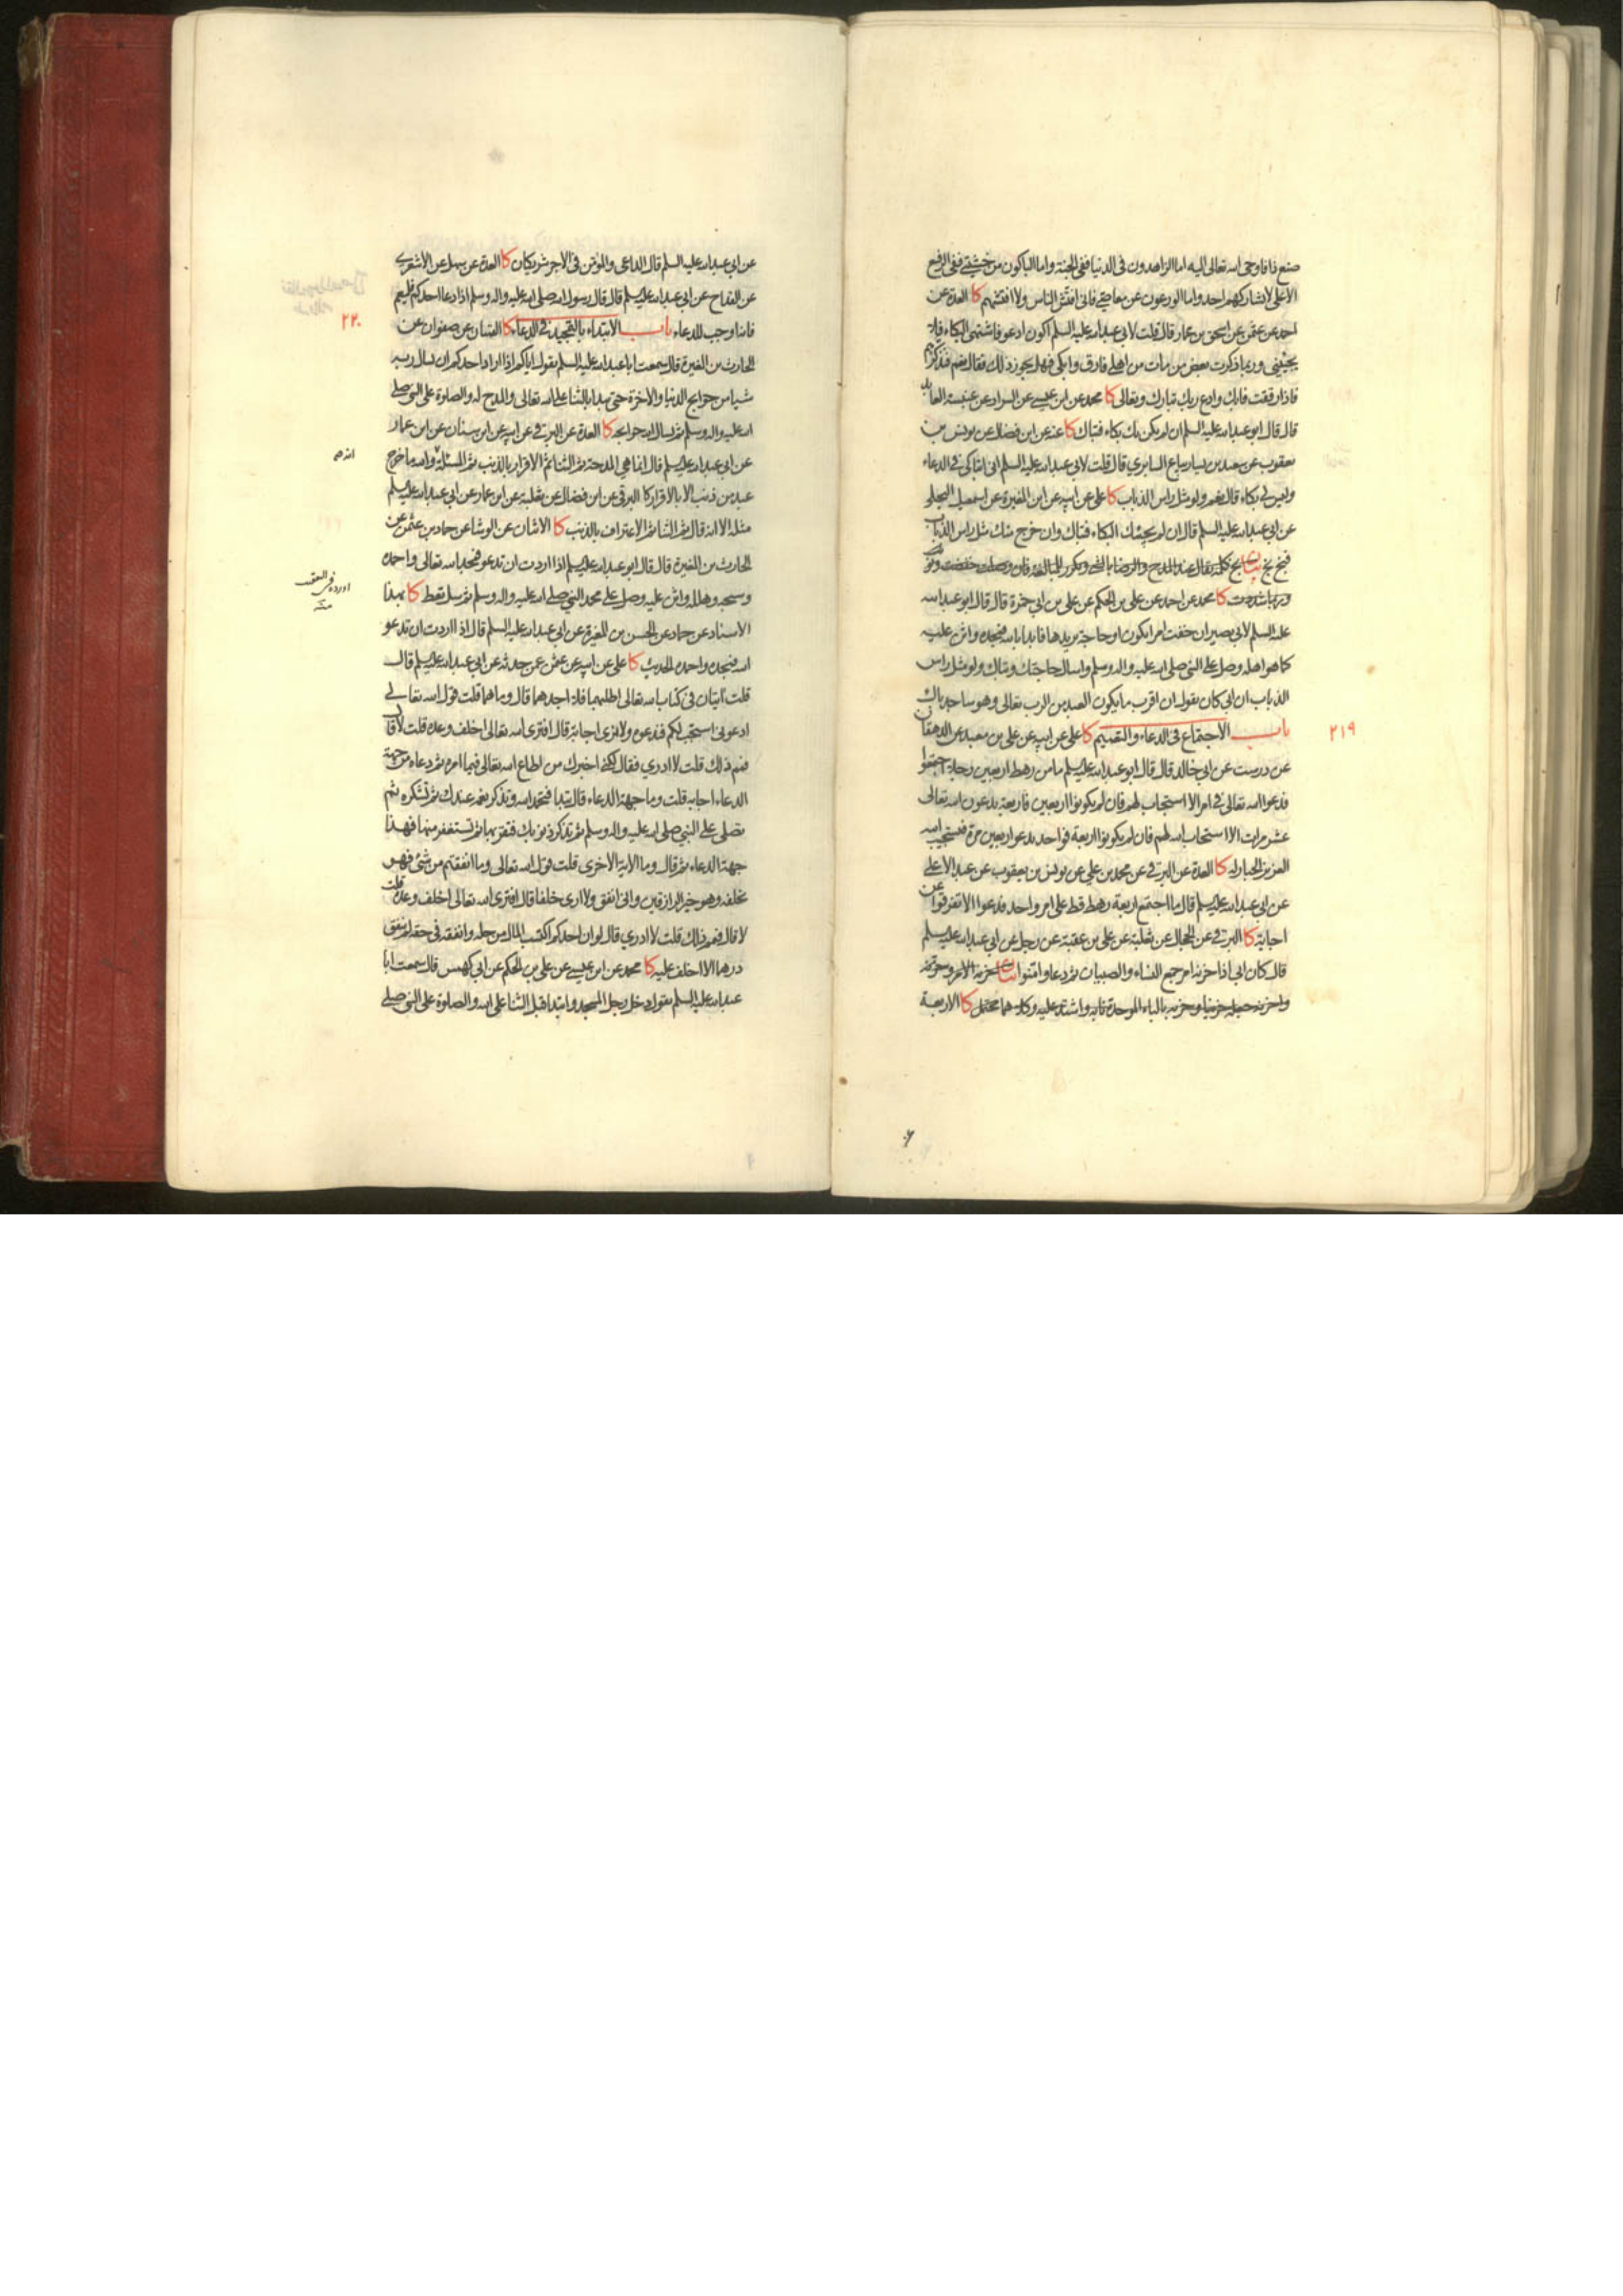 صنع ذا فاوحى الله تعالى اليه اما الزاهدون فى الدنيا ففى الجنة واما الباكون من خشيتى ففى الرفيع
الاعلى لا يشاركهم احد واما الورعون عن معاصيى فانى افتش الناس ولا افتشهم كا العدة عن
احمد عن عثمن عن اسحق بن عمار قال قلت لابى عبدالله عليه السلم اكون ادعو فاشتهى البكاء فلا
يجيئنى وربما ذكرت بعض من مات من اهلى فارق وابكى فهل يجوز ذلك فقال نعم فتذكرهم
فاذا رققت فابك وادع ربك تبارك وتعالى كا محمد عن ابن عيسى عن السراد عن عنبسة العابد
قال قال ابو عبدالله عليه السلم ان لم يكن بك بكاء فتباك كا عنه عن ابن فضال عن يونس بن
يعقوب عن سعيد بن يسار بياع السابرى قال قلت لابى عبدالله عليه السلم انى اتباكى فى الدعاء
وليس لى بكاء قال نعم ولو مثل راس الذباب كا على عن ابيه عن ابن المغيرة عن اسمعيل البجلى
عن ابى عبدالله عليه السلم قال ان لم يجئك البكاء فتباك وان خرج منك مثل راس الذباب
فبخ بخ بيان بخ كلمة يقال عند المدح والرضا بالشئ وتكرر للمبالغة فان وصلت خفضت ونونت
وربما شددت كا محمد عن احمد عن على بن الحكم عن على بن ابى حمزة قال قال ابو عبدالله
عليه السلم لابى بصير ان خفت امرا يكون او حاجة تريدها فابدا بالله فمجده واثن عليه
كما هو اهله وصل على النبى صلى الله عليه واله وسلم واسال حاجتك وتباك ولو مثل راس
الذباب ان ابى كان يقول ان اقرب ما يكون العبد من الرب تعالى وهو ساجد باك
٢١٩ باب الاجتماع فى الدعاء والتعميم كا على عن ابيه عن على بن معبد عن الدهقان
عن درست عن ابى خالد قال قال ابو عبدالله عليه السلم ما من رهط اربعين رجلا اجتمعوا
فدعوا الله تعالى فى امر الا استجاب لهم فان لم يكونوا اربعين فاربعة يدعون الله تعالى
عشر مرات الا استجاب الله لهم فان لم يكونوا اربعة فواحد يدعو اربعين مرة فيستجيب الله
العزيز الجبار له كا العدة عن البرقى عن محمد بن على عن يونس بن يعقوب عن عبد الاعلى
عن ابى عبدالله عليه السلم قال ما اجتمع اربعة رهط قط على امر واحد فدعوا الا تفرقوا عن
اجابة كا البرقى عن الحجال عن ثعلبة عن على بن عقبة عن رجل عن ابى عبدالله عليه السلم
قال كان ابى اذا حزنه امر جمع النساء والصبيان ثم دعا وامنوا بيان حزنه الامر
واحزنه جعله حزينا وحزبه بالباء الموحدة نابه واشتد عليه وكلاهما محتمل كا الاربعة
عن ابى عبدالله عليه السلم قال الداعى والمؤمن فى الاجر شريكان كا العدة عن سهل عن الاشعرى
عن القداح عن ابى عبدالله عليه السلم قال قال رسول الله صلى الله عليه واله وسلم اذا دعا احدكم فليعم
فانه اوجب للدعاء باب الابتداء بالتمجيد فى الدعاء كا القميان عن صفوان عن
٢٢٠
الحارث بن المغيرة قال سمعت ابا عبدالله عليه السلم يقول اياكم اذا اراد احدكم ان يسال ربه
شيئا من حوايج الدنيا والاخرة حتى يبدا بالثناء على الله تعالى والمدح له والصلوة على النبى صلى
الله عليه واله وسلم ثم يسال الله حوائجه كا العدة عن البرقى عن ابيه عن ابن سنان عن ابن عمار
عن ابى عبدالله عليه السلم قال انما هى المدحة ثم الثناء ثم الاقرار بالذنب ثم المسئلة والله ما خرج
انه هم
عبد من ذنب الا بالاقرار كا البرقى عن ابن فضال عن ثعلبة عن ابن عمار عن ابى عبدالله عليه السلم
مثله الا انه قال ثم الثناء ثم الاعتراف بالذنب كا الاثنان عن الوشا عن حماد بن عثمن عن
الحارث بن المغيرة قال قال ابو عبدالله عليه السلم اذا اردت ان تدعو فمجد الله تعالى واحمده
وسبحه وهلله واثن عليه وصل على محمد النبى صلى الله عليه واله وسلم ثم سل تعط كا بهذا
الاسناد عن حماد عن الحسن بن المغيرة عن ابى عبدالله عليه السلم قال اذا اردت ان تدعو
الله فمجده واحمده الحديث كا على عن ابيه عن عثمن عمن حدثه عن ابى عبدالله عليه السلم قال
قلت ايتان فى كتاب الله تعالى اطلبهما فلا اجدهما قال وما هما قلت قول الله تعالى
ادعونى استجب لكم فندعوه ولا نرى اجابة قال افترى الله تعالى اخلف وعده قلت لا قال
فمم ذلك قلت لا ادرى فقال لكنى اخبرك من اطاع الله تعالى فيما امره ثم دعاه من جهة
الدعاء اجابه قلت وما جهة الدعاء قال تبدا فتحمد الله وتذكر نعمه عندك ثم تشكره ثم
تصلى على النبى صلى الله عليه واله وسلم ثم تذكر ذنوبك فتقر بها ثم تستغفر منها فهذا
جهة الدعاء ثم قال وما الاية الاخرى قلت قول الله تعالى وما انفقتم من شئ فهو
يخلفه وهو خير الرازقين وانى انفق ولا ارى خلفا قال افترى الله تعالى اخلف وعده قلت
لا قال فمم ذلك قلت لا ادرى قال لو ان احدكم اكتسب المال من حله وانفقه فى حقه لم ينفق
درهما الا اخلف عليه كا محمد عن ابن عيسى عن على بن الحكم عن ابى كهمس قال سمعت ابا
عبدالله عليه السلم يقول دخل رجل المسجد وابتدا قبل الثناء على الله والصلوة على النبى صلى